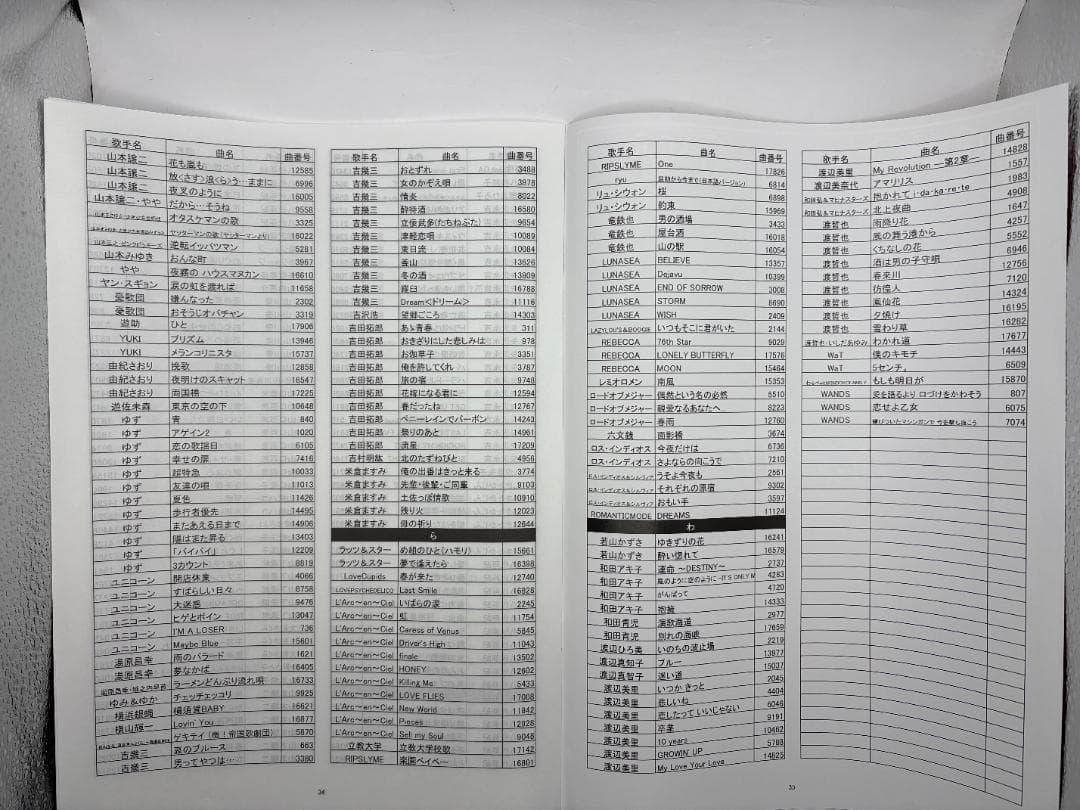 歌手名 曲名 曲番号
山本譲二 花も嵐も 12585
山本譲二 放<さす>浪<ら>う…ままに 6996
山本譲二 夜叉のように 16005
山本譲二・やや だから…そうね 9558
オタスケマンの歌 3325
ヤッターマンの歌 16022
逆転イッパツマン 5281
山本みゆき おんな町 3967
やや 夜霧の ハウスマヌカン 16610
ヤン・スギョン 涙の虹を渡れば 11658
憂歌団 嫌んなった 2302
憂歌団 おそうじオバチャン 3319
遊助 ひと 17906
YUKI プリズム 13946
YUKI メランコリニスタ 15737
由紀さおり 挽歌 12858
由紀さおり 夜明けのスキャット 16547
由紀さおり 両国橋 17225
遊佐未森 東京の空の下 10648
ゆず 青 840
ゆず アゲイン2 1020
ゆず 恋の歌謡日 6105
ゆず 幸せの扉 7416
ゆず 超特急 10033
ゆず 友達の唄 11013
ゆず 夏色 11426
ゆず 歩行者優先 14495
ゆず またあえる日まで 14906
ゆず 陽はまた昇る 13403
ゆず 「バイバイ」 12209
ゆず 3カウント 8819
ユニコーン 開店休業 4066
ユニコーン すばらしい日々 8758
ユニコーン 大迷惑 9476
ユニコーン ヒゲとボイン 13047
ユニコーン I'M A LOSER 736
ユニコーン Maybe Blue 15601
湯原昌幸 雨のバラード 1621
湯原昌幸 夢なかば 16405
ラーメンどんぶり流れ唄 16733
ゆみ&ゆか チェッチェッコリ 9925
横浜銀蝿 横須賀BABY 16621
横山輝一 Lovin' You 16877
ゲキテイ(檄!帝国歌劇団) 5870
吉幾三 哀のブルース 663
吉幾三 男ってやつは… 3380
34
歌手名 曲名 曲番号
吉幾三 おとずれ 3488
吉幾三 女のかぞえ唄 3978
吉幾三 情炎 8022
吉幾三 酔特酒 16580
吉幾三 立佞武多(たちねぷた) 9654
吉幾三 津軽恋唄 10089
吉幾三 東日流 10084
吉幾三 釜山 13626
吉幾三 冬の酒 13909
吉幾三 窪臼 16788
吉幾三 Dream<ドリーム> 11116
吉沢浩 望郷ごころ 14303
吉田拓郎 あゝ青春 311
吉田拓郎 おきざりにした悲しみは 978
吉田拓郎 お伽草子 3351
吉田拓郎 俺を許してくれ 3787
吉田拓郎 旅の宿 9748
吉田拓郎 花嫁になる君に 12594
吉田拓郎 春だったね 12767
吉田拓郎 ペニーレインでバーボン 14243
吉田拓郎 祭りのあと 14961
吉田拓郎 流星 17209
吉村明紘 北のたずねびと 4956
米倉ますみ 俺の出番はきっと来る 3774
米倉ますみ 先輩・後輩・ご同輩 9103
米倉ますみ 土佐っぽ情歌 10910
米倉ますみ 残り火 12023
米倉ますみ 母の祈り 12644
ら
ラッツ&スター め組のひと(ハモリ) 15661
ラッツ&スター 夢で逢えたら 16398
LoveCupids 春が来た 12740
LOVEPSYCHEDELICO Last Smile 16828
L'Arc~en~Ciel いばらの涙 2245
L'Arc~en~Ciel 虹 11754
L'Arc~en~Ciel Caress of Venus 5845
L'Arc~en~Ciel Driver's High 11043
L'Arc~en~Ciel finale 13502
L'Arc~en~Ciel HONEY 12602
L'Arc~en~Ciel Killing Me 5433
L'Arc~en~Ciel LOVE FLIES 17008
L'Arc~en~Ciel New World 11842
L'Arc~en~Ciel Pieces 12928
L'Arc~en~Ciel Sell my Soul 9048
立教大学 立教大学校歌 17142
RIPSLYME 楽園ベイベー 16801
歌手名 曲名 曲番号
RIPSLYME One 17826
ryu 6814
リュ・シウォン 桜 6898
リュ・シウォン 約束 15969
竜鉄也 男の酒場 3433
竜鉄也 屋台酒 16018
竜鉄也 山の駅 16054
LUNASEA BELIEVE 13357
LUNASEA Dejavu 10399
LUNASEA END OF SORROW 3008
LUNASEA STORM 8690
LUNASEA WISH 2409
LAZYLOU'S&BOOGIE いつもそこに君がいた 2144
REBECCA 76th Star 9029
REBECCA LONELY BUTTERFLY 17576
REBECCA MOON 15464
レミオロメン 南風 15353
ロードオブメジャー 偶然という名の必然 5510
ロードオブメジャー 親愛なるあなたへ 8223
ロードオブメジャー 春雨 12760
六文銭 面影橋 3674
ロス・インディオス 今夜だけは 6736
ロス・インディオス さよならの向こうで 7210
うそよ今夜も 2561
それぞれの原宿 9302
おもい手 3597
ROMANTICMODE DREAMS 11124
わ
若山かずさ ゆきずりの花 16241
若山かずさ 酔い惚れて 16579
和田アキ子 運命 ~DESTINY~ 2737
和田アキ子 風のように 空のように ~IT'S ONLY M 4283
和田アキ子 がんばって 4720
和田アキ子 抱擁 14333
和田青児 演歌海道 2977
和田青児 別れの海峡 17659
渡辺ひろ美 いのちの波止場 2219
渡辺真知子 ブルー 13977
渡辺真知子 迷い道 15037
渡辺美里 いつか きっと 2045
渡辺美里 悲しいね 4404
渡辺美里 恋したって いいじゃない 6046
渡辺美里 卒業 9191
渡辺美里 10 years 10462
渡辺美里 GROWIN' UP 5788
渡辺美里 My Love Your Love 14625
33
歌手名 曲名 曲番号
渡辺美里 My Revolution ―第2章― 14828
渡辺美奈代 アマリリス 1557
和田弘&マヒナスターズ 抱かれて i・da・ka・re・te 1983
和田弘&マヒナスターズ 北上夜曲 4908
渡哲也 雨降り花 1647
渡哲也 風の舞う港から 4257
渡哲也 くちなしの花 5552
渡哲也 酒は男の子守唄 6946
渡哲也 春来川 12756
渡哲也 彷徨人 7120
渡哲也 鳳仙花 14324
渡哲也 夕焼け 16195
渡哲也 雪わり草 16282
渡哲也・いしだあゆみ わかれ道 17677
WaT 僕のキモチ 14443
WaT 5センチ。 6509
もしも明日が 15870
WANDS 愛を語るより 口づけをかわそう 807
WANDS 恋せよ乙女 6075
WANDS 錆びついたマシンガンで 今を撃ち抜こう 7074